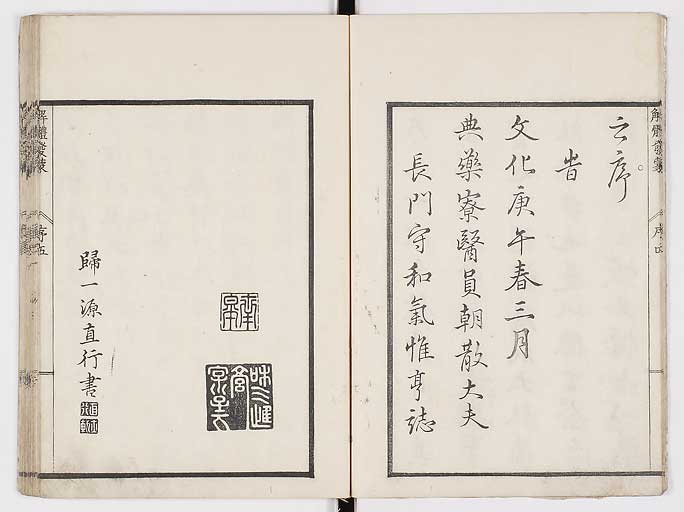 解體發蒙
序四
之序
時
文化庚午春三月
典藥寮醫員朝散大夫
長門守和氣惟亨誌
歸一源直行書
解體發蒙
序五